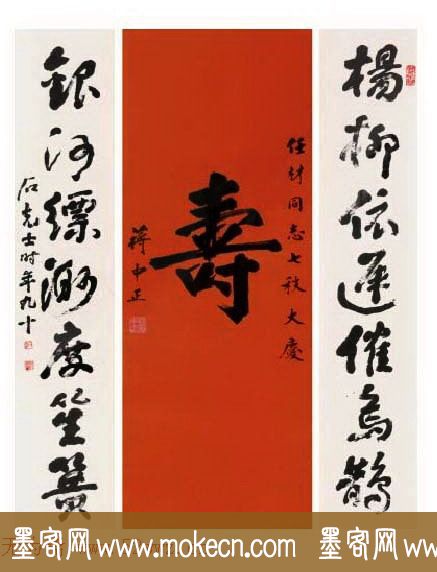 楊柳依遲催烏鵲
同志七秩大慶
壽
蔣中正
銀河縹渺度笙簧
石克士時年九十
墨客网www.mokecn.com 墨客网